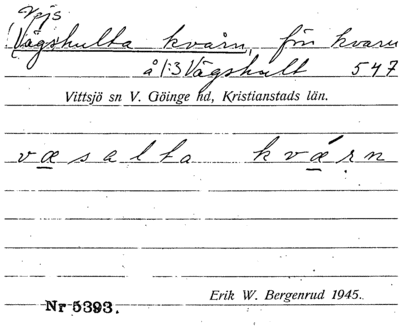 Vpjs
Vågshulta kvarn, för kvarn
å 1:3 Vågshult 547
Vittsjö sn V. Göinge hd, Kristianstads län.
væsalta kværn
Erik W. Bergenrud 1945.
Nr 5393.